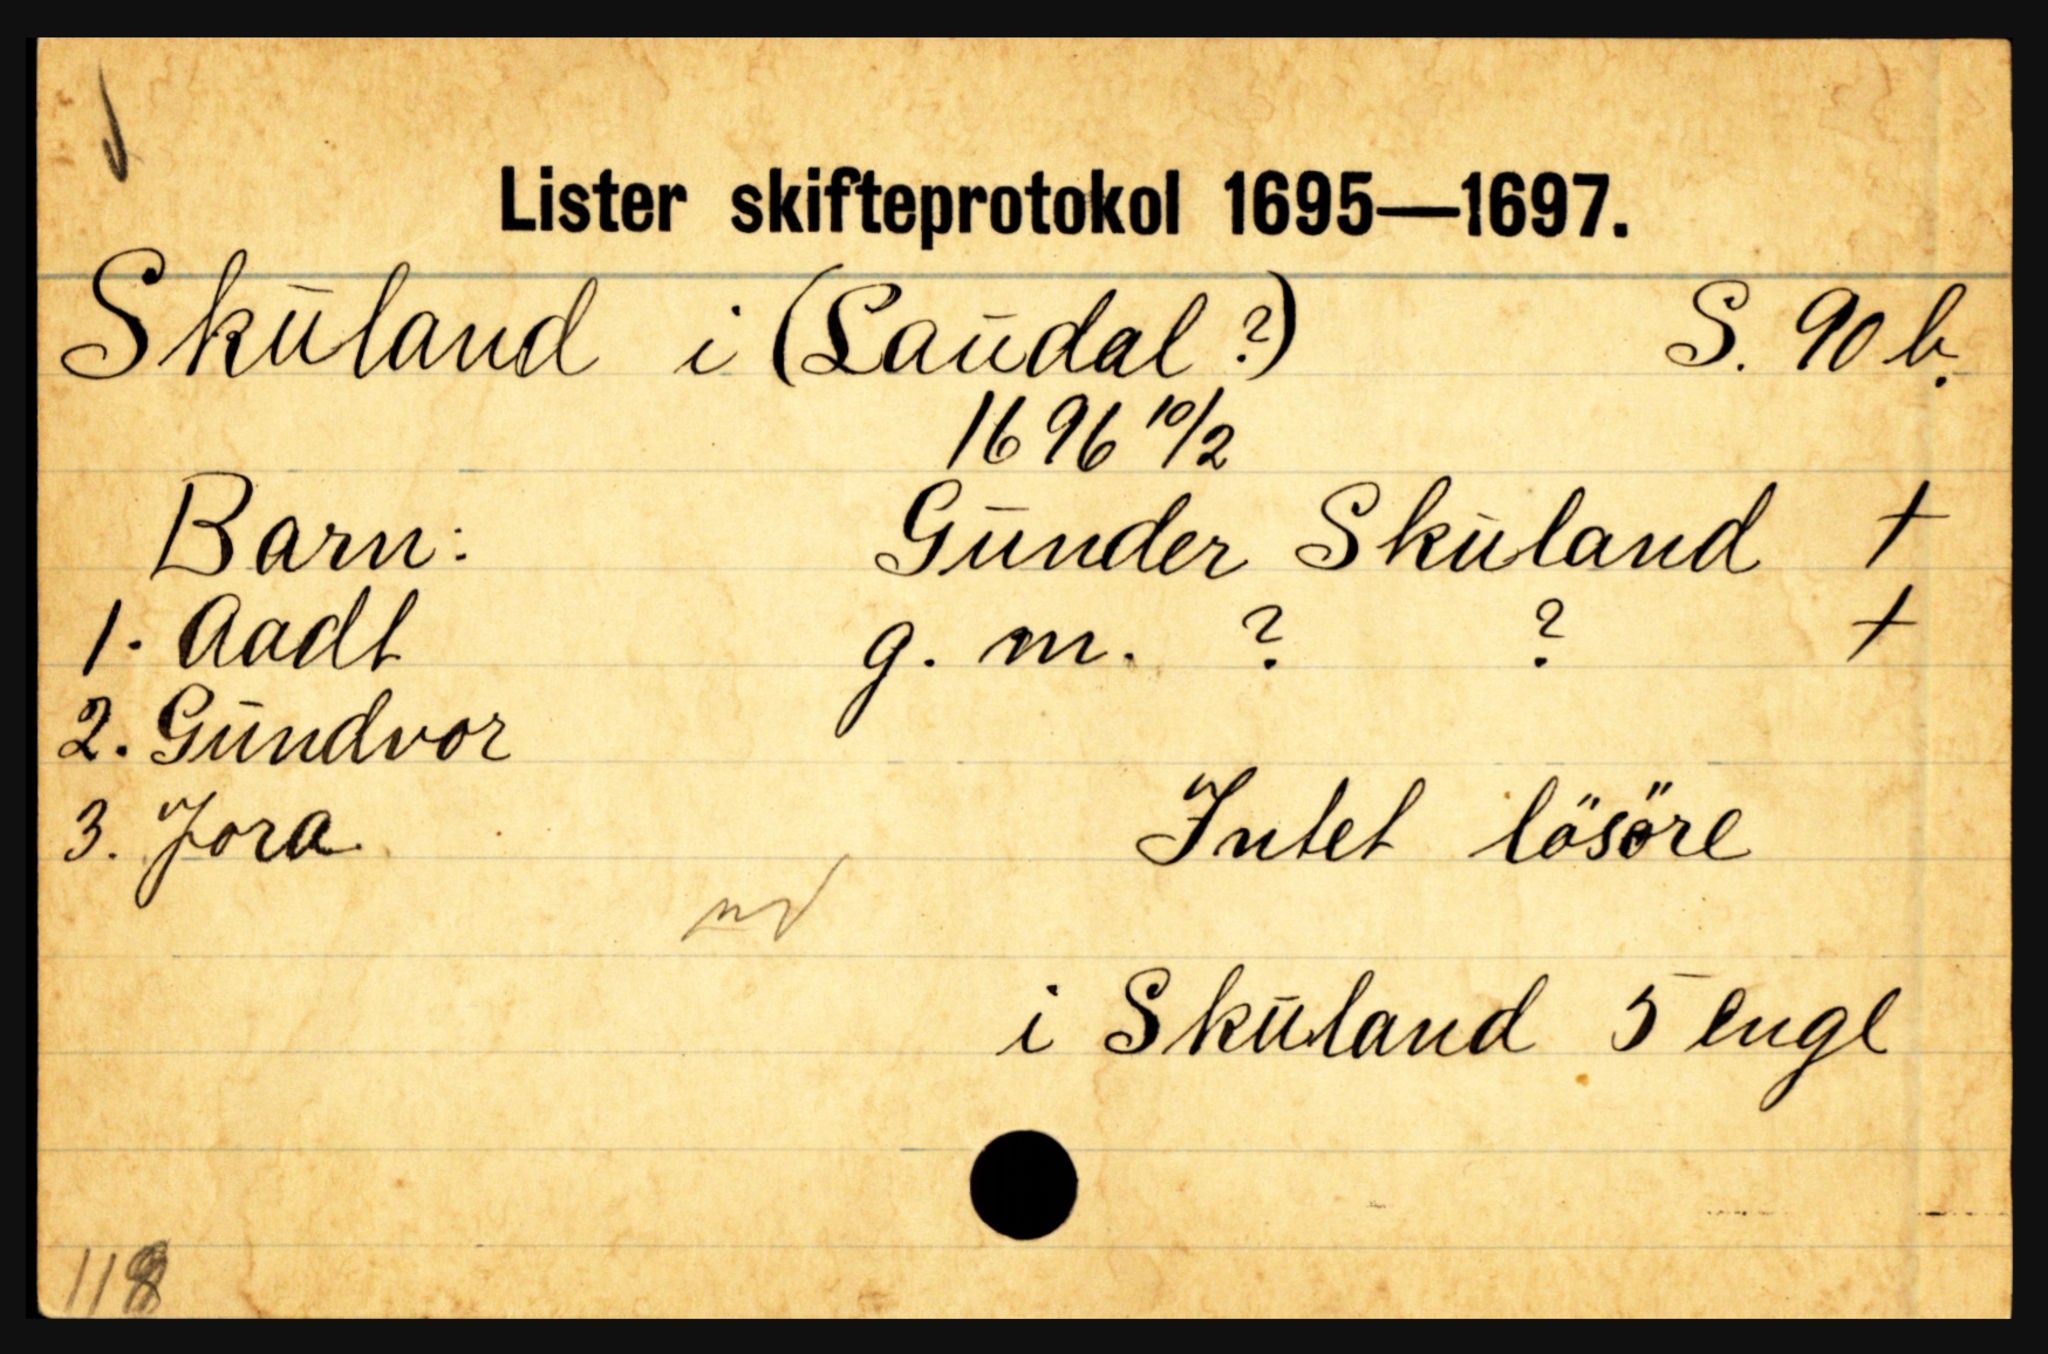 Lister skifteprotokol 1695—1697.
Skuland i (Laudal?) S. 90 b.
1696 10/2
Barn: Gunder Skuland +
1. Aadt g. m. ? ? +
2. Gundvor
3. Jora
Intet lösöre
i Skuland 5 engl
118